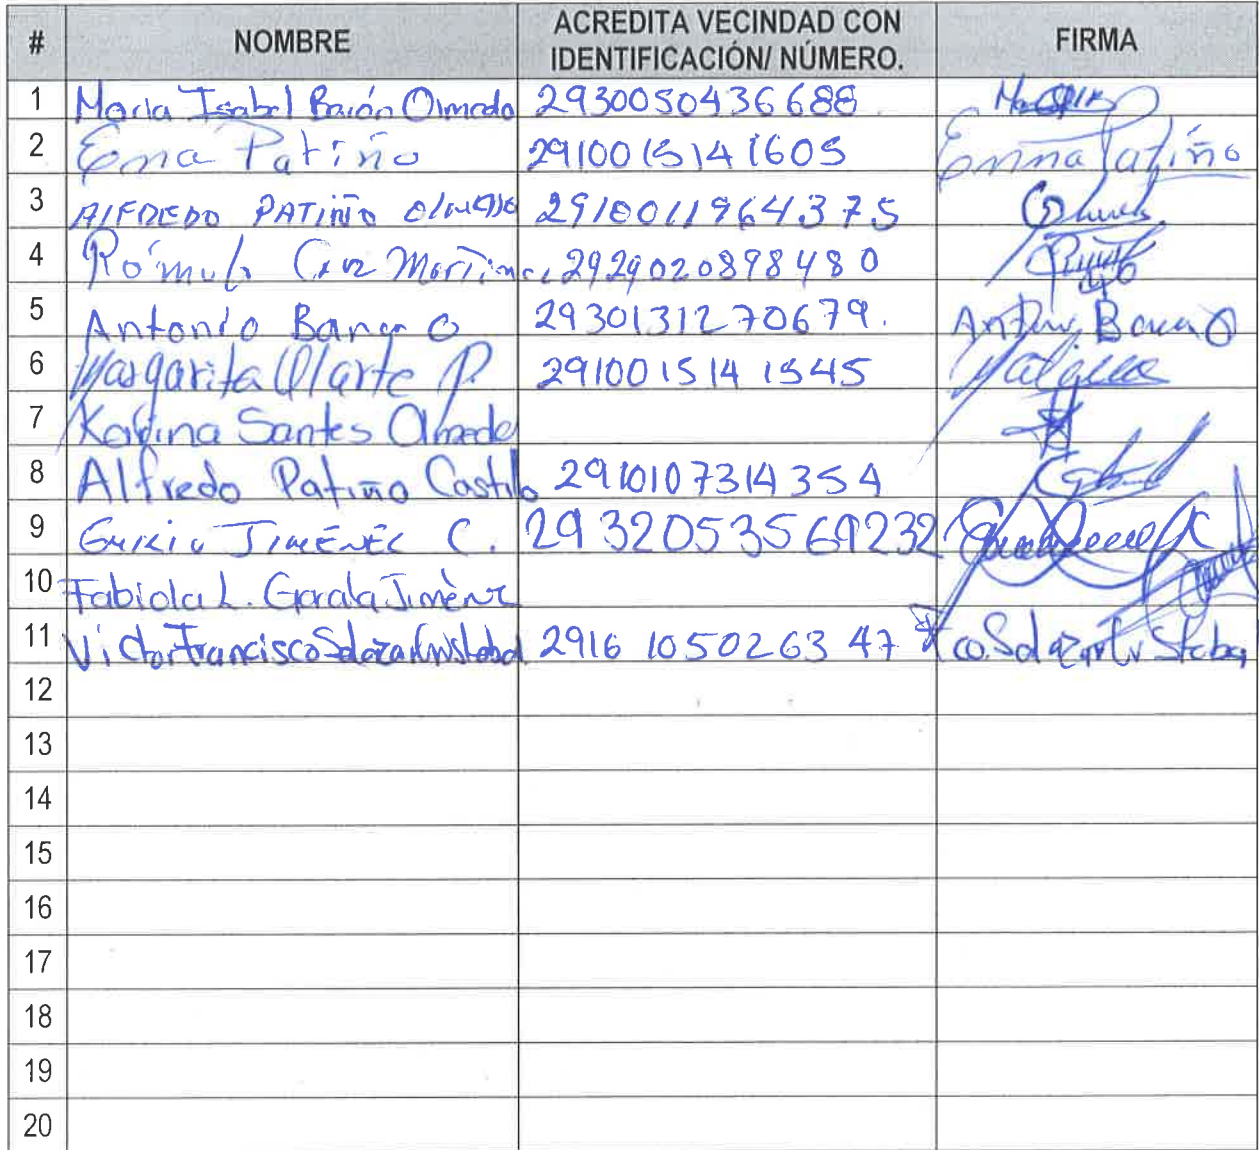 # NOMBRE ACREDITA VECINDAD CON IDENTIFICACIÓN/ NÚMERO. FIRMA
1 Maria Isabel Barón Olmedo 2930050436688
2 Ema Patiño 2910015141605 Emma Patiño
3 AlFREDO PATIÑO Olmedo 2910011964375
4 Rómulo Cruz 2929020898480
5 Antonio O 2930131270679.
6 Margarita Olarte P. 2910015141545
7 Karina Santes Olmedo
8 Alfredo Patiño Castillo 2910107314354
9 JIMÉNEZ C. 2932053569232
10 Fabiola L. Jimènez
11 Victor Francisco Salazar 2916105026347
12
13
14
15
16
17
18
19
20